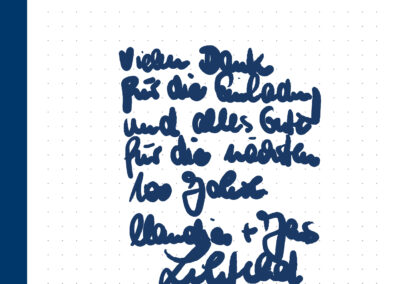 Vielen Dank
für die Einladung
und alles Gute
für die nächsten
100 Jahre
Claudia +